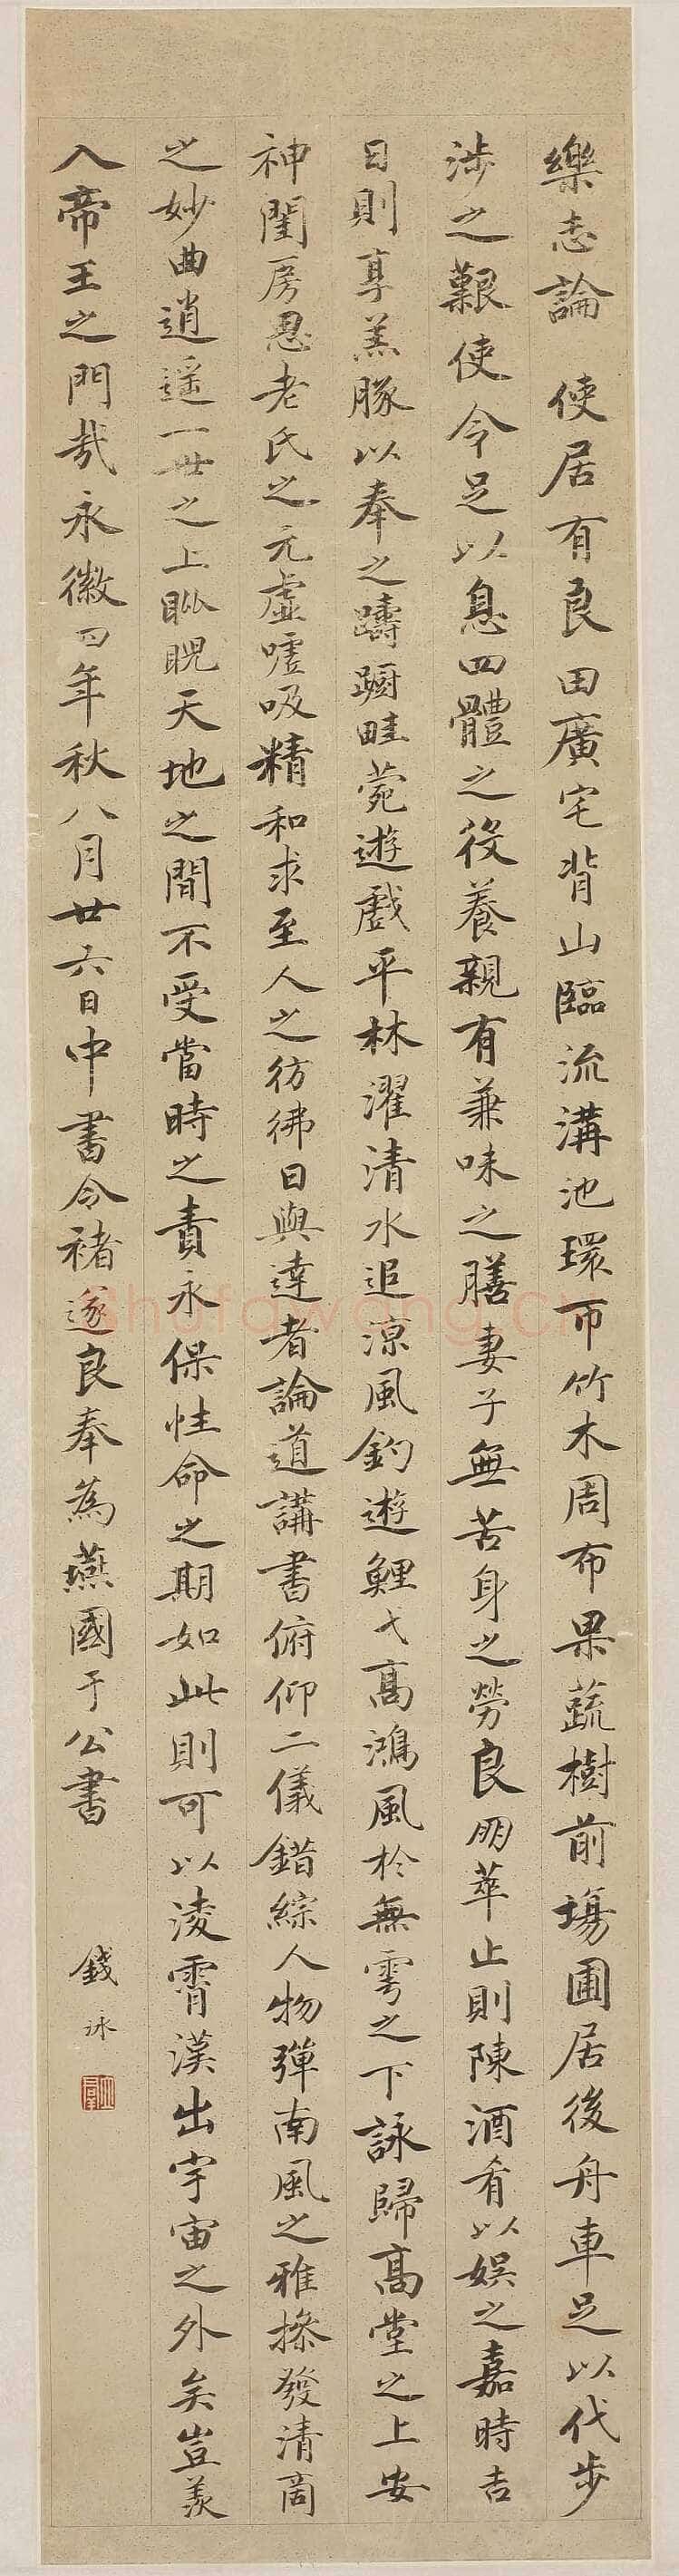 樂志論 使居有良田廣宅背山臨流溝池環帀竹木周布果蔬樹前場圃居後舟車足以代步
涉之艱使令足以息四體之役養親有兼味之膳妻子無苦身之勞良朋萃止則陳酒肴以娛之嘉時吉
日則享羔豚以奉之躊躕畦菀遊戲平林濯清水追涼風釣遊鯉弋高鴻風於無雩之下詠歸高堂之上安
神閨房思老氏之元虛嘘吸精和求至人之彷彿日與達者論道講書俯仰二儀錯綜人物彈南風之雅操發清商
之妙曲逍遥一世之上睥睨天地之間不受當時之責永保性命之期如此則可以淩霄漢出宇宙之外矣豈羨
入帝王之門哉永徽四年秋八月廿六日中書令褚遂良奉為燕國于公書 錢泳
shufawang.cn